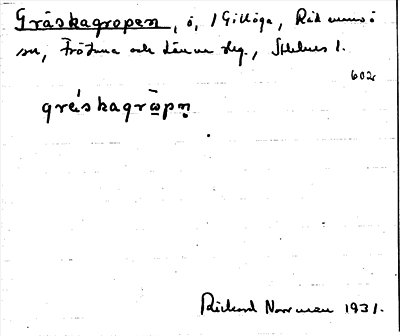 Gräskagropen, ö, i Gillöga, Rådmansö
sn, Frötuna och Länna skg., Sthlms l.
602
gräskagrωpn̥
Rickard Norrman 1931.